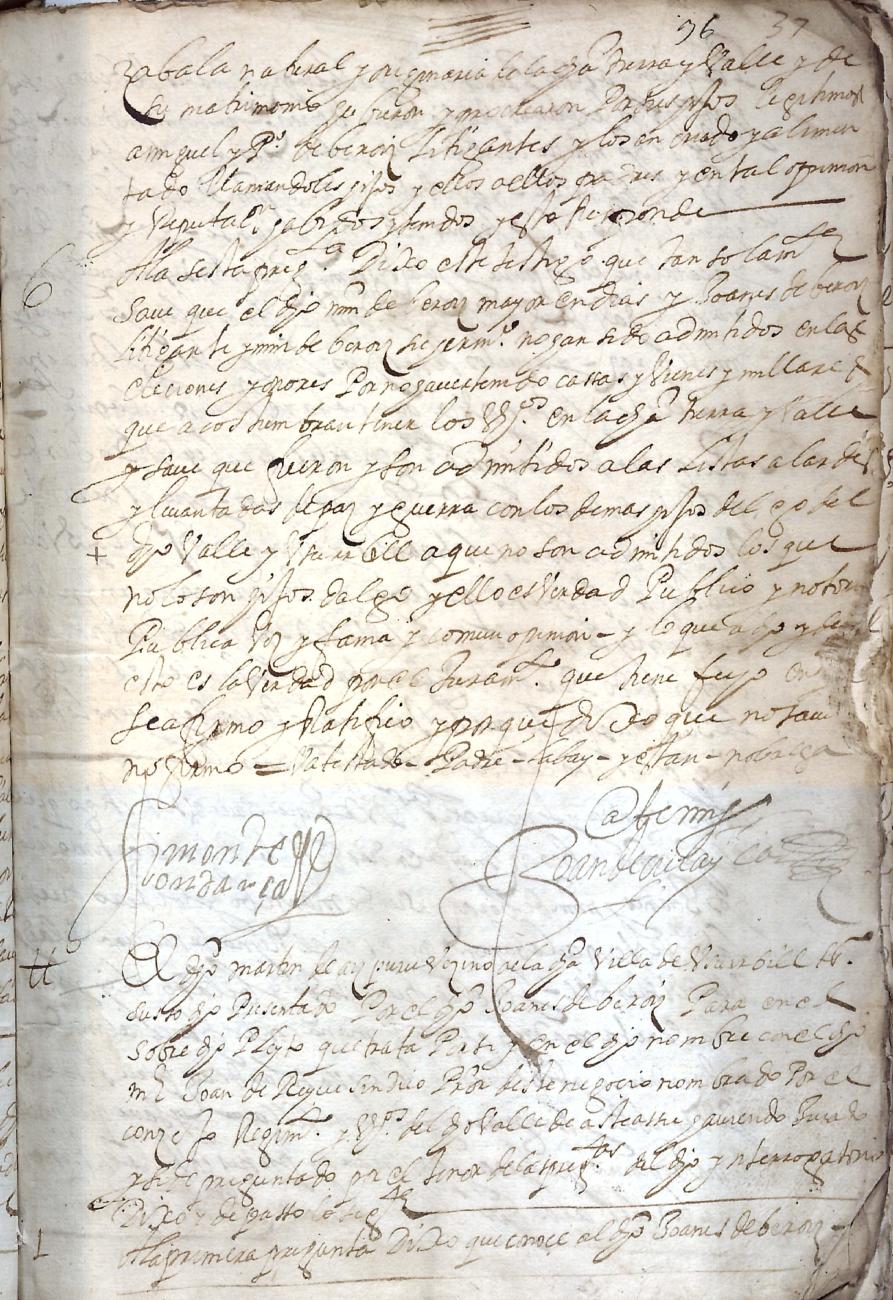 96 37
zabala natural y originaria de la dha tierra y Valle y de
su matrimonio hubieron y procrearon Por sus hijos legitimos
a miguel y Pº. de beroiz litigantes y los an criado y alimen
tado llamandoles hijos y ellos a ellos padres y en tal opinion
y reputaon. habidos y tenidos y esto responde
6 A la sesta pregta. Dixo este testigo que tan solamte
save que el dho min de beroiz mayor en dias y Joanes de beroiz
litigante y min de beroiz su herm.º no han sido admitidos en las
eleciones y honores Por no haver tenido cassas y vienes y millares
que acostumbran tener los Vos. en la dha tierra y Valle
y save que fueron y son admitidos a las listas alardes
y levantadas de paz y guerra con los demas hijos dalgo del
+ dho Valle y Usurbill a que no son admitidos los que
no lo son hijos dalgo y ello es verdad Publico y notorio
Publica voz y fama y comun opinion - y lo que a dho y
esto es la verdad por el Juramto. que tiene fecho en
se afirmo y Ratifico y porque Dixo que no save
no firmo = Va testado - Padre - y estan - no valga
Simon de
ondarça
Ante my
Joan de
tt El dho martin vezino de la dha Villa de Usurbill tº.
susso dho Presentado Por el dho Joanes de beroiz Para en el
sobre dho Pleyto que trata Por si y en el dho nombre con el dho
Joan de sindico Pror deste negocio nombrado Por el
conzejo Regimto. y Vos. del dho Valle de asteasu haviendo Jurado
y side preguntado por el tenor de las pregtas del dho ynterrogatorio
Dixo y depusso lo sigte
1 A la primera pregunta Dixo que conoce al dho Joanes de beroiz